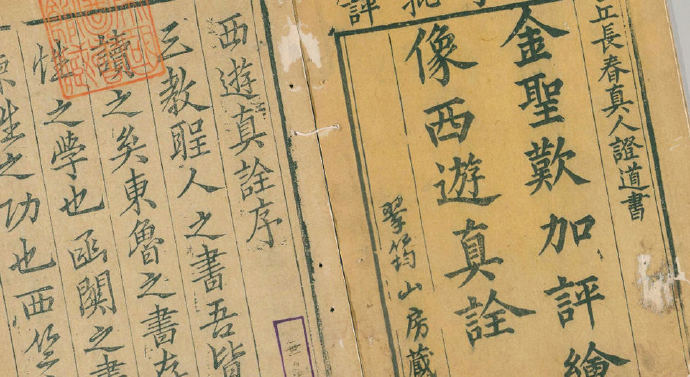 評
丘長春真人證道書
金聖歎加評繪
像西遊真詮
翠筠山房藏
西遊真詮序
三教聖人之書吾皆
讀之矣東魯之書存
性之學也函關之書
之功也西竺